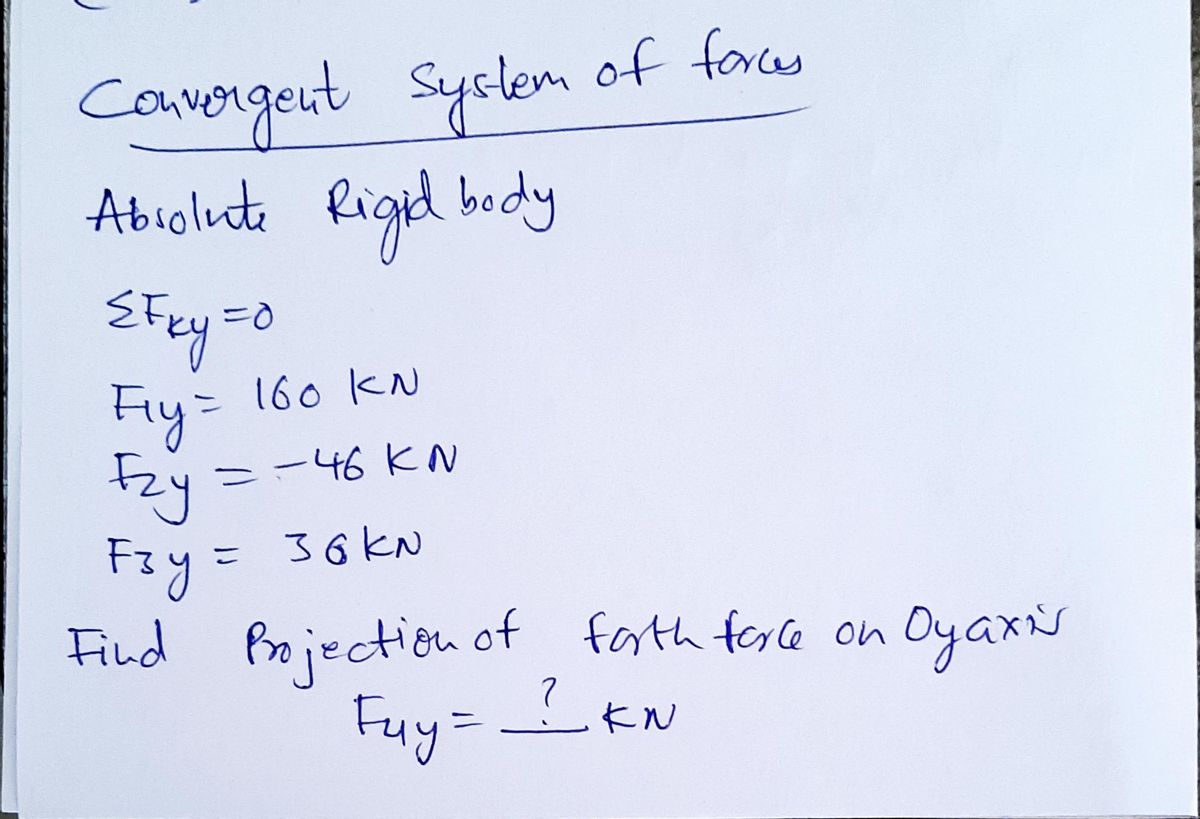 Convergent System of forces
Absolute Rigid body
ΣFky=0
F1y= 160 KN
F2y = -46 KN
F3y = 36 KN
Find Projection of forth force on Oyaxis
F4y= ? KN